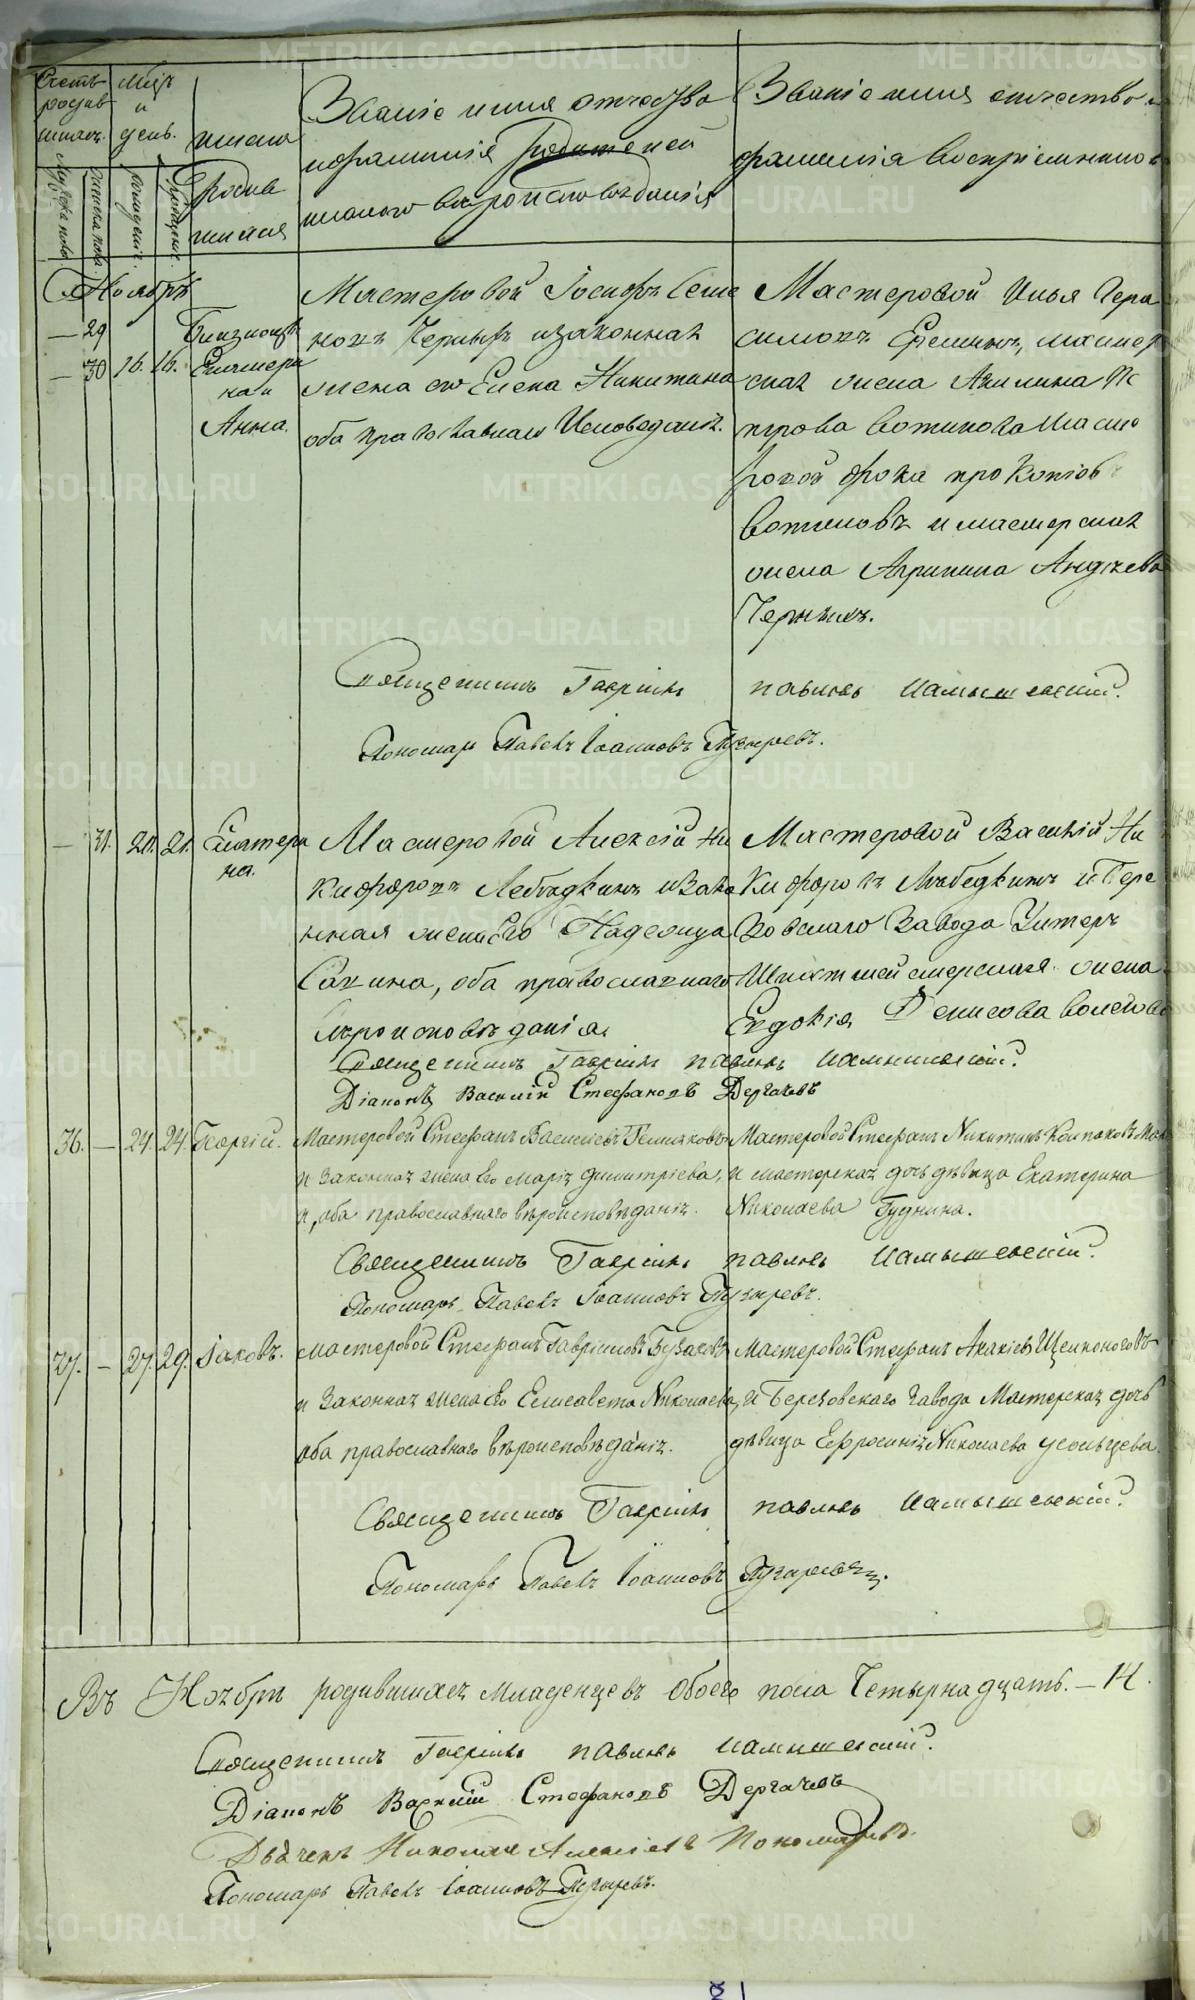 Счетъ родив шихся.
мужеска пола.
женска пола.
Мцъ и день.
рожденія.
крещенія.
имена Родив шихся
Званіе имя отчество
и фамилія Родителей
и какого вѣроисповѣданія
Званіе имя отчество и
фамилія воспріемников
Ноябрь
— 29
— 30 16. 16.
Близнецы
Екатери
на и
Анна.
Мастеровой Іосифъ Семе
новъ Черныхъ и законная
жена его Елена Никитина
оба православнаго Исповеданія.
Мастеровой Илья Гера
симовъ Ереминъ, мастер
ская жена Акилина Пе
трова Вотинова Масте
ровой Фрока прокопіев
Вотиновъ и мастерская
жена Агрипина Андреева
Черныхъ.
Священникъ Гавріилъ павловъ Камышевскій.
Пономарь Павелъ Іоанновъ Пузыревъ.
— 31. 21. 21.
Екатери
на.
Мастеровой Алексѣй Ни
кифоровъ Лебедкинъ и Зако
нная жена Его Надежда
Савина, оба православнаго
вѣроисповѣданія.
Мастеровой Василій Ни
кифоровъ Лебедкинъ и Бере
зовскаго Завода Унтеръ
Шихтмейстерская жена
Евдокія Денисова
Священникъ Гавріилъ павловъ Камышевскій.
Діаконъ Василій Стефановъ Дергачевъ
36. — 24. 24. Георгій.
Мастеровой Стефанъ Васильевъ
и законная жена Его Марія Димитріева,
оба православнаго вѣроисповѣданія.
Мастеровой Стефанъ Никитинъ Колпаковъ
и мастерская дочь дѣвица Екатерина
Николаева Гуднина.
Священникъ Гавріилъ павловъ Камышевскій.
Пономарь Павелъ Іоанновъ Пузыревъ.
37. — 27. 29. Іаковъ.
Мастеровой Стефанъ Гавриловъ
и законная жена Его Елисавета Николаева,
оба православнаго вѣроисповѣданія.
Мастеровой Стефанъ Акакіевъ Щелконоговъ
и Березовскаго Завода Мастерская дочь
дѣвица Ефросинія Николаева усольцева.
Священникъ Гавріилъ павловъ Камышевскій.
Пономарь Павелъ Іоанновъ Пузыревъ.
Въ Ноябрѣ родившихся Младенцевъ обоего пола Четырнадцать. — 14.
Священникъ Гавріилъ павловъ Камышевскій.
Діаконъ Василій Стефановъ Дергачевъ
Дьячекъ Николай Алексѣевъ Пономаревъ.
Пономарь Павелъ Іоанновъ Пузыревъ.
METRIKI.GASO-URAL.RU